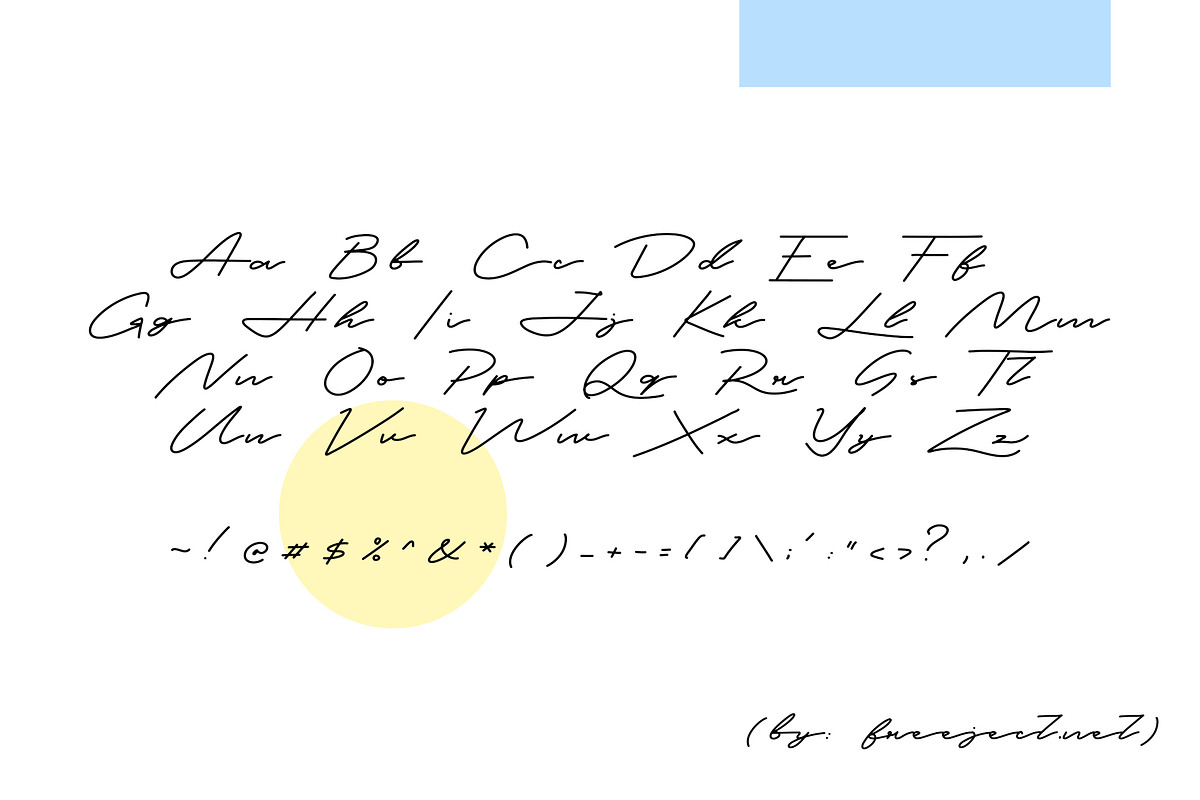 Aa Bb Cc Dd Ee Ff
Gg Hh Ii Jj Kk Ll Mm
Nn Oo Pp Qq Rr Ss Tt
Uu Vv Ww Xx Yy Zz
~ ! @ # $ % ^ & * ( ) _ + - = [ ] \ ; ' : " < > ? , . /
(by: freeject.net)